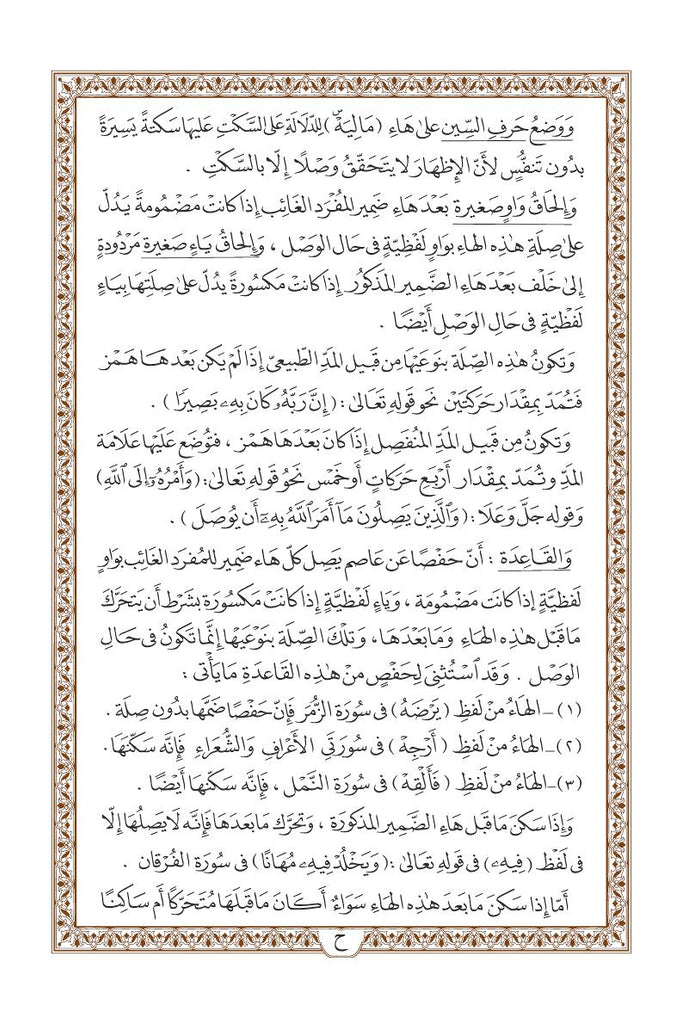 وَوَضْعُ حَرفِ السِّينِ عَلىٰ هَاءِ (مَالِيَهْۜ) لِلدَّلَالَةِ عَلىَ السَّكْتِ عَلَيهَا سَكتَةً يَسِيرَةً
بدُون تَنفُّسٍ لأَنَّ الإِظهَارَ لَا يتَحَقَّقُ وَصْلًا إلّا بالسَّكْتِ .
وَإِلحَاقُ وَاوٍ صَغيرةٍ بَعْدَ هَاءِ ضَمِيرِ المُفْرَدِ الغَائبِ إذَا كانَتْ مَضْمُومةً يَدُلّ
عَلىٰ صِلَةِ هٰذِهِ الهَاءِ بوَاوٍ لَفظِيَّةٍ فى حَال الوَصْل ، وَإلحاقُ يَاءٍ صَغيرةٍ مَرْدُودَةٍ
إلىٰ خَلْف بَعْدَ هَاءِ الضَّمِيرِ المَذكُورِ إذَا كانَتْ مَكسُورَةً يدُلّ عَلىٰ صِلَتِهَا بيَاءٍ
لَفظِيَّةٍ فى حَالِ الوَصْلِ أَيْضًا .
وَتَكونُ هٰذِهِ الصِّلَة بنَوعَيْهَا مِن قَبِيل المَدِّ الطَّبيعِىّ إِذَا لَمْ يَكن بَعْدهَا هَمْز
فَتُمَدّ بِمِقْدَار حَرَكتَيْن نَحوَ قولِهِ تَعَالىٰ : (إِنَّ رَبَّهُۥ كَانَ بِهِۦ بَصِيرًا) .
وَتَكونُ مِن قَبيل المَدِّ المُنفَصِل إِذَا كَانَ بَعْدَهَا هَمْز ، فتُوضَع عَلَيْهَا عَلَامَة
المَدِّ وتُمَدّ بمِقْدَار أَرْبَع حَرَكَاتٍ أَوخَمْسٍ نَحْوُ قَولهِ تَعَالىٰ: (وَأَمْرُهُۥٓ إِلَى ٱللَّهِ)
وَقوله جَلَّ وَعَلَا : (وَٱلَّذِينَ يَصِلُونَ مَآ أَمَرَ ٱللَّهُ بِهِۦٓ أَن يُوصَلَ) .
وَالقَاعِدَة : أَنّ حَفْصًا عَن عَاصِم يَصِل كلّ هَاء ضَمِيرٍ للمُفرَدِ الغَائِب بوَاوٍ
لَفظِيَّةٍ إذَا كانَت مَضْمُومَة ، وَيَاءٍ لَفظِيَّةٍ إذَا كَانَتْ مَكسُورَة بشَرْطِ أَن يتَحَرَّكَ
مَاقَبْل هٰذِهِ الهَاءِ وَمَابَعْدَهَا، وَتلْكَ الصِّلَة بنَوعَيْهَا إنَّمَا تَكُونُ فى حَالِ
الوَصْل . وَقَد ٱسْتُثْنِىَ لِحَفْصٍ مِنْ هٰذِهِ القَاعدَةِ مَايَأتى :
(١) ـ الهَاءُ مِنْ لَفظِ (يَرْضَهُ) فى سُورَة الزُّمَر فَإِنّ حَفْصًا ضَمَّهَا بدُون صِلَة .
(٢) ـ الهَاءُ مِنْ لَفظِ (أَرْجِهْ) فى سُورَتَىِ الأَعْرافِ وَالشُّعَراءِ فَإِنَّه سَكّنهَا .
(٣) ـ الهَاءُ مِنْ لَفظِ (فَأَلْقِهْ) فى سُورَةِ النَّمْل ، فَإِنَّه سَكّنهَا أَيْضًا .
وَإذَا سَكَنَ مَاقَبل هَاءِ الضَّمِيرِ المَذكورَة ، وَتحَرَّك مَابَعدَهَا فَإنَّه لَايَصِلُهَا إلّا
فى لَفظ (فِيهِۦ) فى قَولِهِ تعَالىٰ :(وَيَخْلُدْ فِيهِۦ مُهَانًا) فى سُورَة الفُرْقان .
أَمّا إذَا سَكَنَ مَابَعدَ هٰذِهِ الهَاءِ سَوَاءٌ أَكَانَ مَاقَبلَهَا مُتَحَرّكًا أَم سَاكِنًا
ح